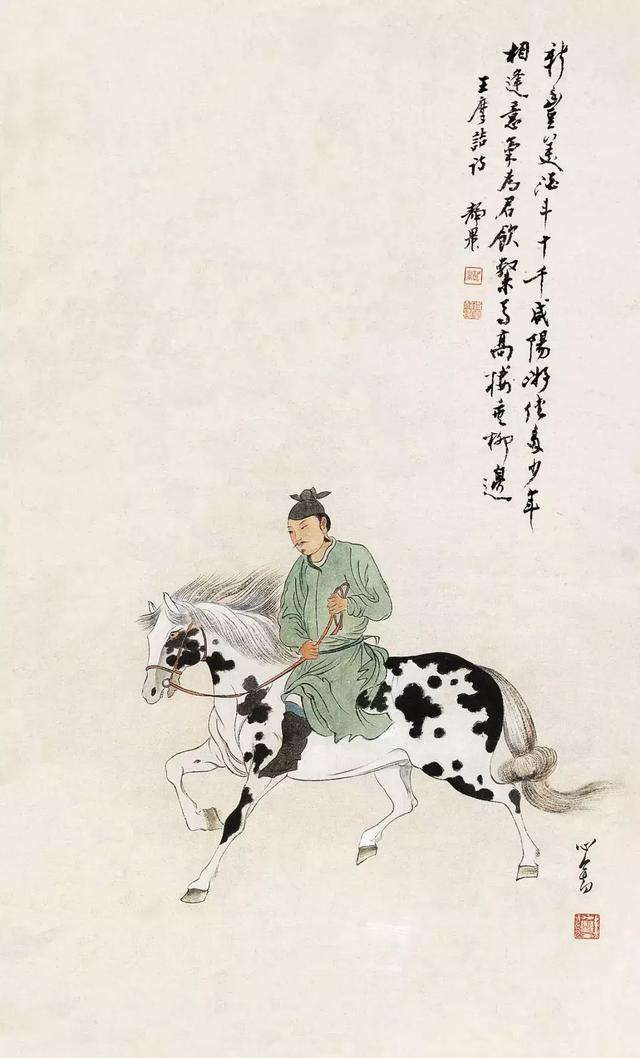 新豐美酒斗十千咸陽游俠多少年
相逢意氣為君飲繫馬高樓垂柳邊
王摩詰詩
心畬